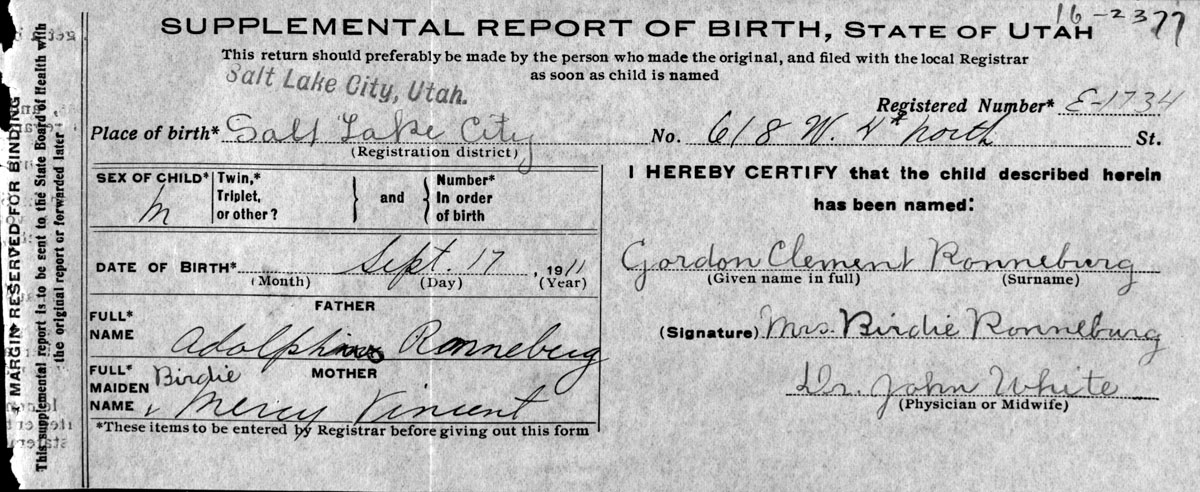 16-2377
SUPPLEMENTAL REPORT OF BIRTH, STATE OF UTAH
This return should preferably be made by the person who made the original, and filed with the local Registrar
as soon as child is named
Salt Lake City, Utah.
Registered Number* E-1734
Place of birth* Salt Lake City No. 618 W. 4th North St.
(Registration district)
SEX OF CHILD* M
Twin,* Triplet, or other? } and { Number* In order of birth
I HEREBY CERTIFY that the child described herein
has been named:
DATE OF BIRTH* Sept. 17, 1911
(Month) (Day) (Year)
Gordon Clement Ronneburg
(Given name in full) (Surname)
FATHER
FULL* NAME Adolphines Ronneberg
(Signature) Mrs. Birdie Ronneburg
MOTHER
FULL* MAIDEN NAME Birdie Mercy Vincent
Dr. John White
(Physician or Midwife)
*These items to be entered by Registrar before giving out this form
MARGIN RESERVED FOR BINDING
This supplemental report is to be sent to the State Board of Health with
the original report or forwarded later